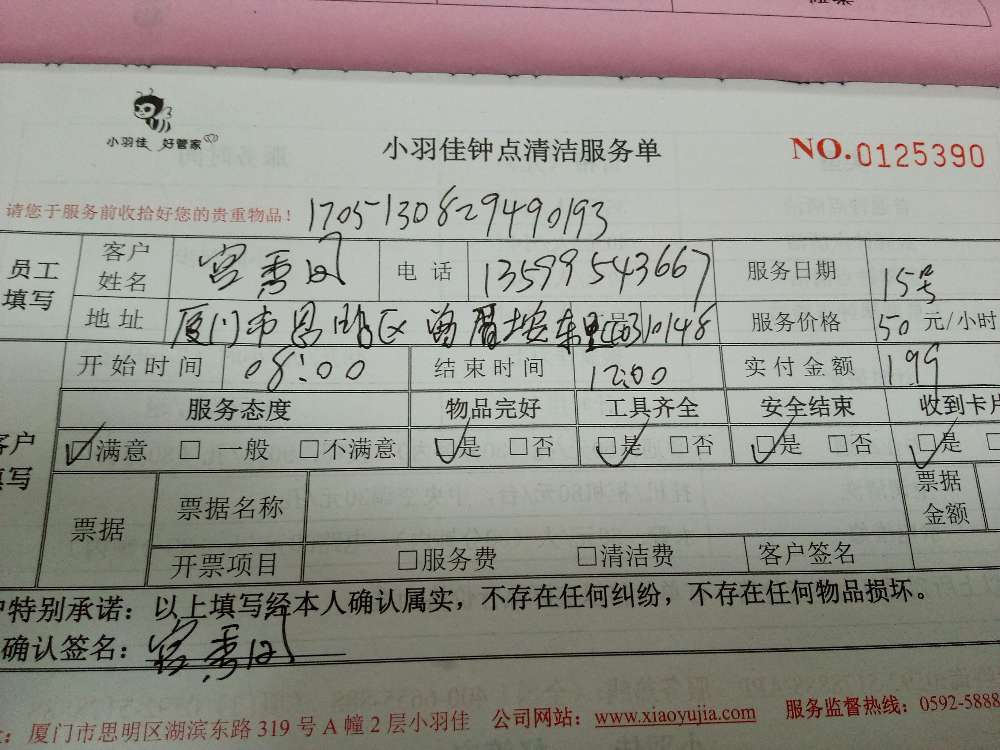 小羽佳 好管家
小羽佳钟点清洁服务单
NO.0125390
请您于服务前收拾好您的贵重物品！ 1705130829490193
员工填写 客户姓名 宫秀 电话 13599543667 服务日期 15号
地址 厦门市思明区曾厝垵东里 服务价格 50元/小时
开始时间 08:00 结束时间 12:00 实付金额 199
服务态度 物品完好 工具齐全 安全结束 收到卡片
客户填写 ☑满意 □一般 □不满意 ☑是 □否 ☑是 □否 ☑是 □否 ☑是
票据 票据名称 票据金额
开票项目 □服务费 □清洁费 客户签名
特别承诺：以上填写经本人确认属实，不存在任何纠纷，不存在任何物品损坏。
确认签名：宫秀
厦门市思明区湖滨东路 319 号 A 幢 2 层小羽佳 公司网站：www.xiaoyujia.com 服务监督热线：0592-5888